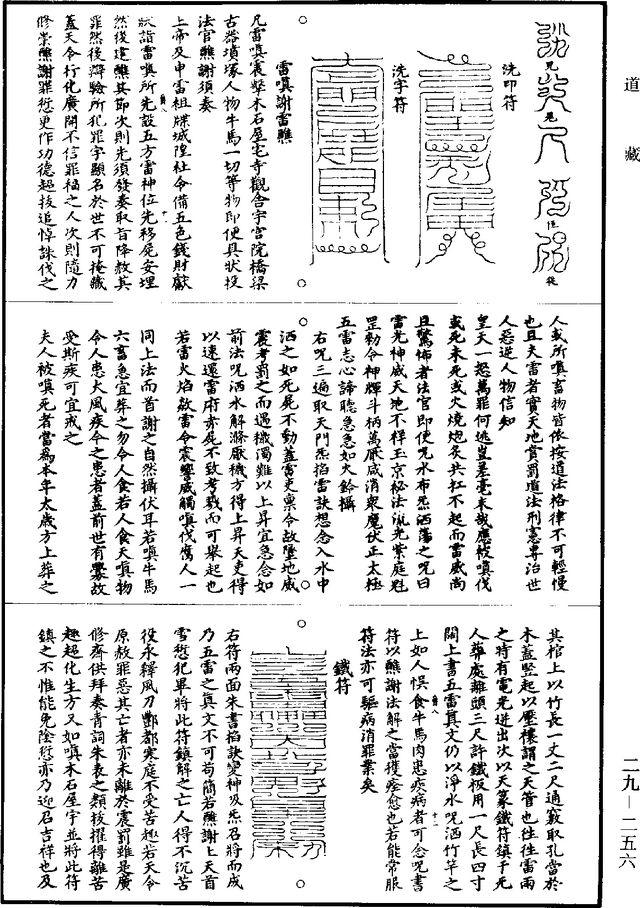 道藏
洗印符
洗字符
雷嗔謝雷醮
凡雷嗔震擊木石屋宅寺觀舍宇宮院橋梁
古器墳塚人物牛馬一切等物即便具狀投
法官醮謝須奏
上帝及申雷祖牒城隍社令備五色錢財獻
試詣雷嗔所先設五方雷神位先移屍安埋
然後建醮其節次則先須發奏取旨降赦其
罪然後辯驗所犯罪字顯名於世不可掩藏
蓋天令行化廣開不信罪福之人次則隨力
修崇醮謝罪愆更作功德超拔追悼誅伐之
人或所嗔畜物皆依按道法格律不可輕慢
也且夫雷者實天地賞罰道法刑憲專治世
人惡逆人物信知
皇天一怒萬罪何逃豈毫末哉應被嗔伐
或死未死或火燒炮炙共扛不起而雷威尚
且驚怖者法官即便呪水布炁洒蕩之呪曰
雷光神威天地不祥玉京秘法流光紫庭魁
罡勑令神輝斗柄萬厭咸消衆魔伏正太極
五雷志心諦聽急急如火鈴攝
右呪三遍取天門炁掐雷訣想念入水中
洒之如死屍不動蓋雷吏稟令故墮地威
震考罰之而遇穢濁難以上昇宜急念如
前法呪洒水解滌厭穢方得上昇天吏得
以速還雷府亦屍不致考戮而可舉起也
若雷火焰欻雷令震響威觸嗔伐傷人一
同上法而首謝之自然攝伏耳若嗔牛馬
六畜急宜葬之勿令人食若人食天嗔物
令人患大風疾今之患者蓋前世有釁故
受斯疾可宜戒之
夫人被嗔死者當為本年太歲方上葬之
其棺上以竹長一丈二尺通竅取孔當於
木蓋竪起以壓棲謂之天管也往往雷雨
之時有電光迸出次以天篆鐵符鎮于死
人葬處離頭三尺許鐵板用一尺長四寸
闊上書五雷真文仍以淨水呪洒竹竿之
上如人悞食牛馬肉患疾病者可念呪書
符以醮謝法解之當獲痊愈也若能常服
符法亦可驅病消罪業矣
鐵符
右符兩面朱書掐訣變神及炁召將而成
乃五雷之真文不可苟簡若醮謝上天首
雪愆犯車將此符鎮解之亡人得不沉苦
役永釋風刀酆都寒庭不受苦趣若天令
原赦罪惡其亡者亦未離於震罰雖是廣
修齋供拜奏青詞朱表之類拔擢得離苦
趣超化生方又如嗔木石屋宇並將此符
鎮之不惟能免陰愆亦乃迎召吉祥也及
二九—二五六